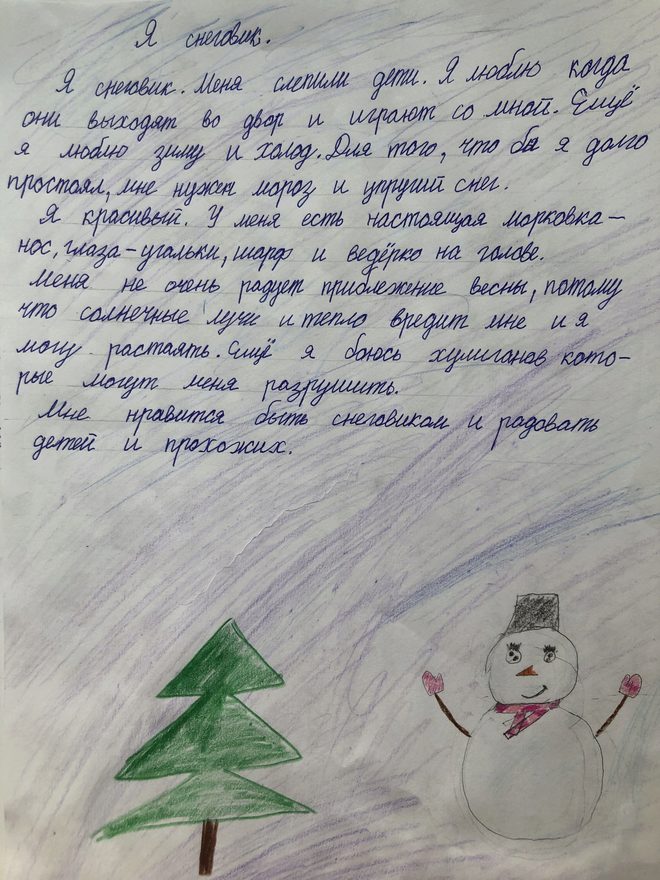 Я снеговик.
Я снеговик. Меня слепили дети. Я люблю когда
они выходят во двор и играют со мной. Ещё
я люблю зиму и холод. Для того, что бы я долго
простоял, мне нужен мороз и упругий снег.
Я красивый. У меня есть настоящая морковка-
нос, глаза-угольки, шарф и ведёрко на голове.
Меня не очень радует приближение весны, потому
что солнечные лучи и тепло вредит мне и я
могу растаять. Ещё я боюсь хулиганов кото-
рые могут меня разрушить.
Мне нравится быть снеговиком и радовать
детей и прохожих.